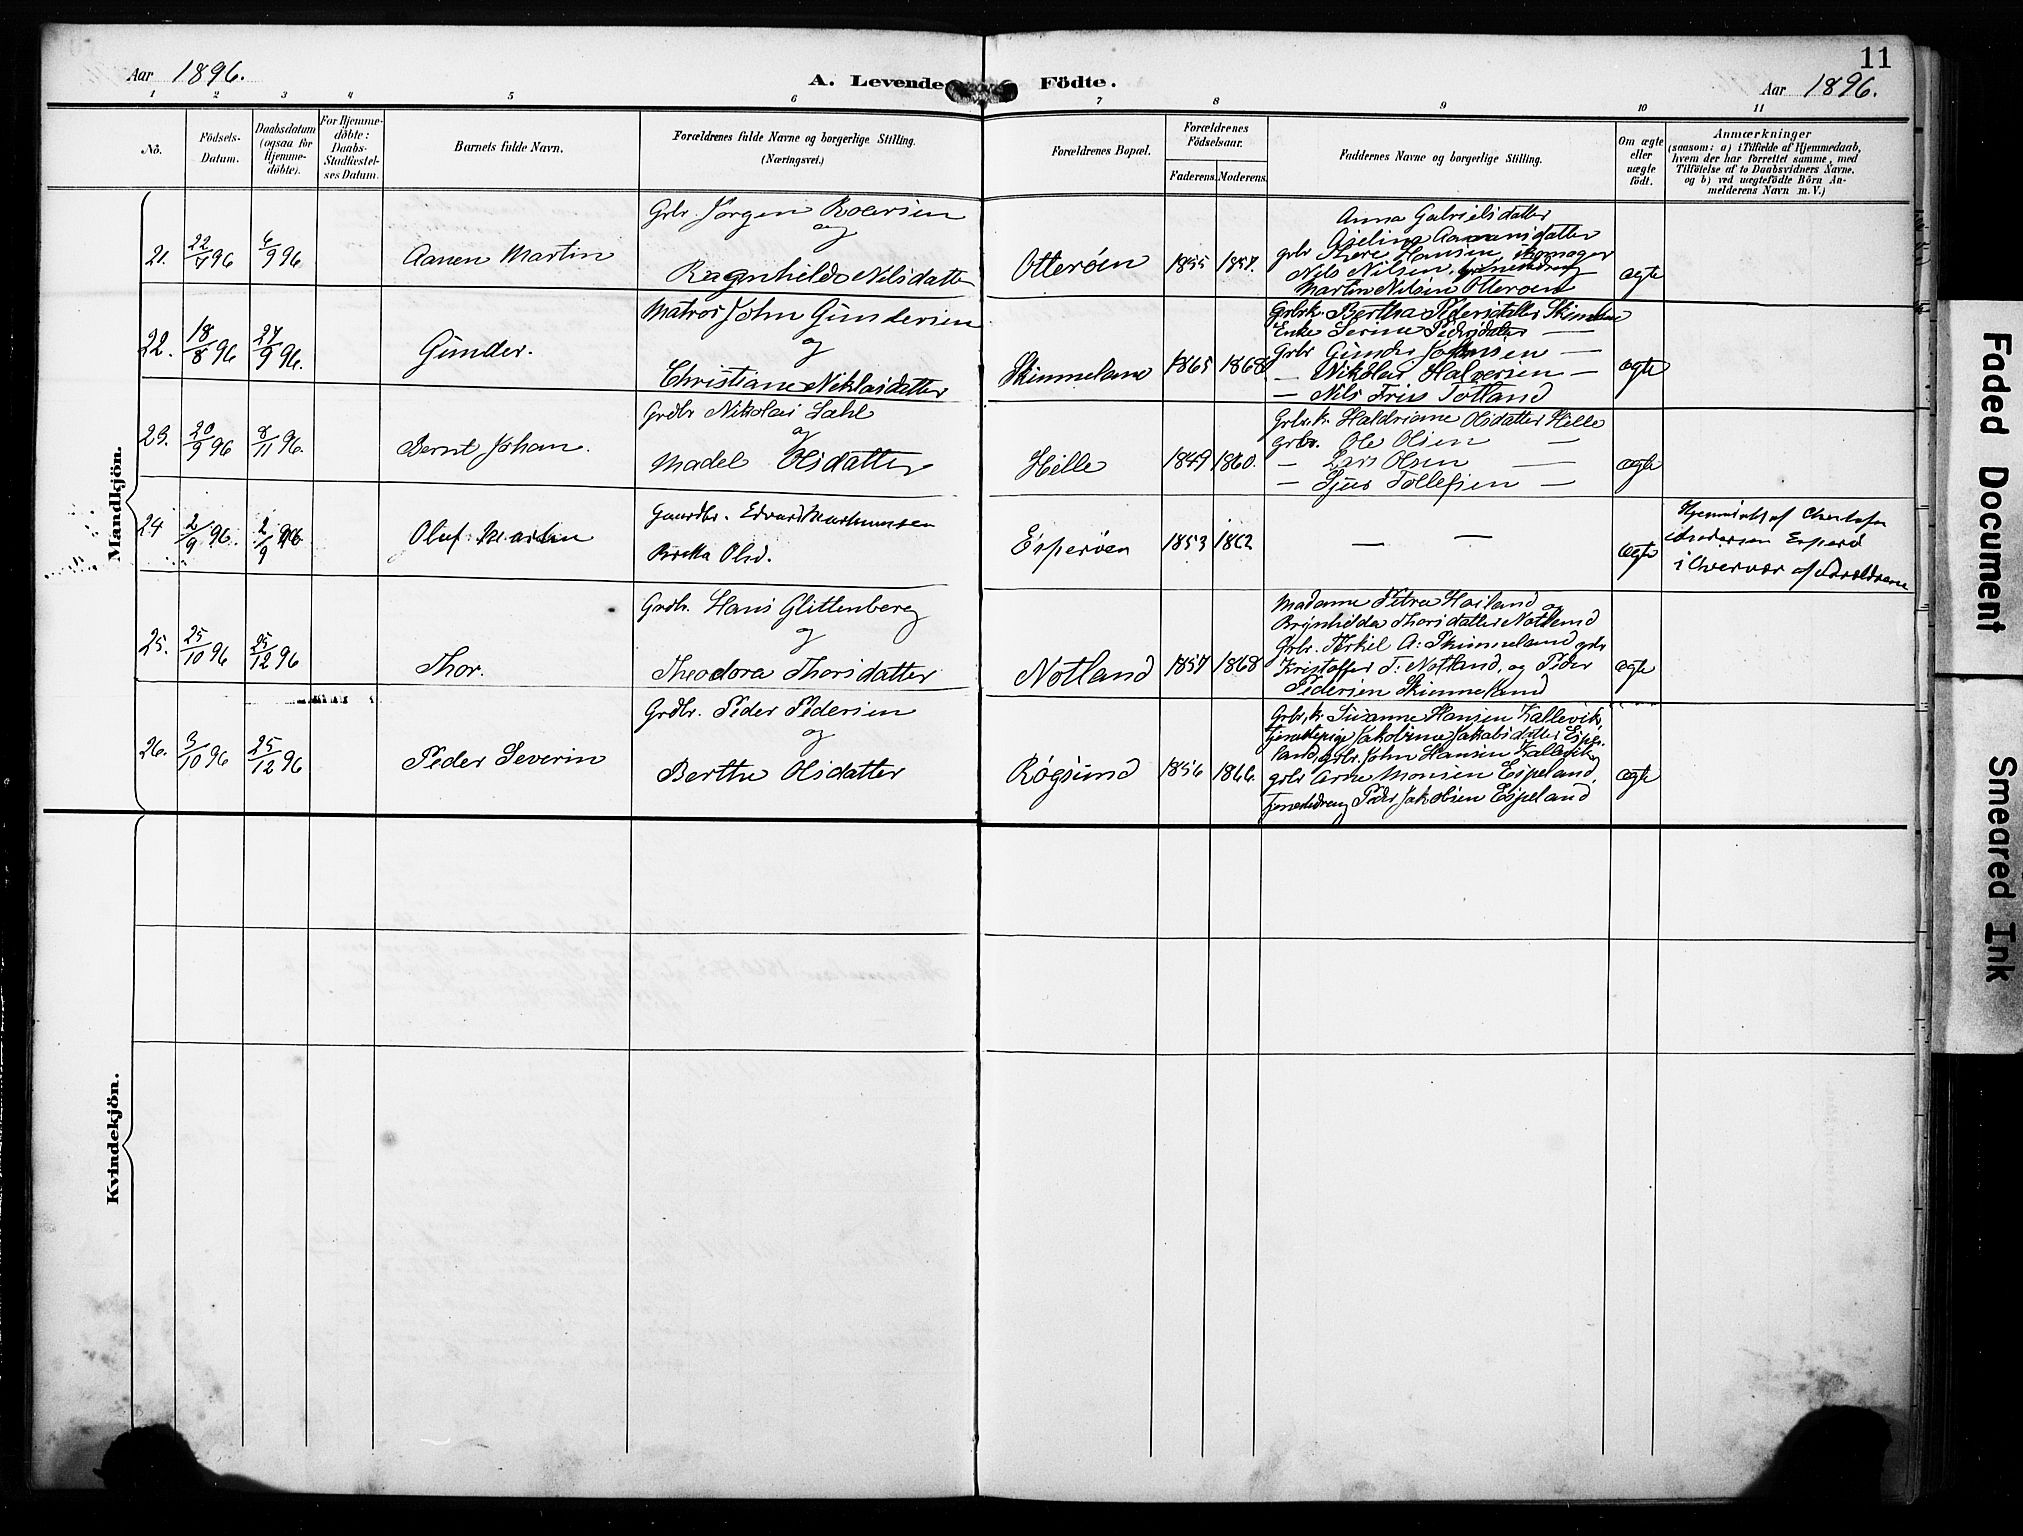 11
Aar 1896.
A. Levende Födte.
Aar 1896.
1 2 3 4 5 6 7 8 9 10 11
Nö.
Födsels-Datum.
Daabsdatum (ogsaa för Hjemme-döbte).
For Hjemme-döbte: Daabs-Stadfæstel-ses Datum.
Barnets fulde Navn.
Forældrenes fulde Navne og borgerlige Stilling. (Næringsvei.)
Forældrenes Bopæl.
Forældrenes Födselsaar.
Faderens. Moderens.
Faddernes Navne og borgerlige Stilling.
Om ægte eller uægte födt.
Anmærkninger
(saasom: a) i Tilfælde af Hjemmedaab, hvem der har forrettet samme, med Tilföielse af to Daabsvidners Navne, og b) ved uægtefödte Börn An-melderens Navn m. V.)
Mandkjön.
21. 22/7 96 6/9 96 Aanen Martin
Grbr. Jörgen Roersen
og
Ragnhilda Nilsdatter
Otteröen 1855 1857.
Anna Gabrielsdatter
Nils Nilsen
Martin Nilsen Otteröen
ægte
22. 18/8 96 27/9 96. Gunder.
Matros John Gundersen
og
Christiane Niklasdatter
Skimmeland 1865 1868
Grbrk. Bertha Pedersdatter
Enke Serine Pedersdatter —
grbr Gunder —
— Nikolai Halversen —
— Nils Friis Totland
ægte
23. 20/9 96 8/11 96. Bernt Johan.
Grdbr Nikolai Sahl
og
Madel Olsdatter
Hille 1849 1860.
Grbr.k. Haldriane Olsdatter Hille
grbr. Ole Olsen —
— Lars Olsen —
— Sjus Tollefsen —
ægte
24 2/9 96. 2/9 96 Oluf Martin
Gaardbr. Edvard
Olsd.
Esperöen 1853 1862
— —
ægte
Hjemmedøbt af
Andersen
i Overvær af Forældrene
25. 25/10 96 25/12 96 Thor.
Grdbr. Hans Glittenberg
og
Theodora Thorsdatter
Notland 1857 1868
Madame Petra Hoiland
Brynhilda Thorsdatter Notland
Grbr. Terkel A: Skimmeland grbr
Kristoffer T: Notland, og Peder
Pedersen Skimmeland
ægte
26. 3/10 96 25/12 96 Peder Severin
Grdbr. Peder Pedersen
og
Berthe Olsdatter
Rögsund 1856 1866.
Grbr.k. Susanne Hansen Kallevik,
Tjenestepige Jakobine Jakobsdatter Espe-
land, grbr. John Hansen Kallevik
grbr Arne Monsen Espeland,
Tjenestedreng Peder Jakobsen Espeland
ægte
Kvindekjön.
Faded Document
Smeared Ink